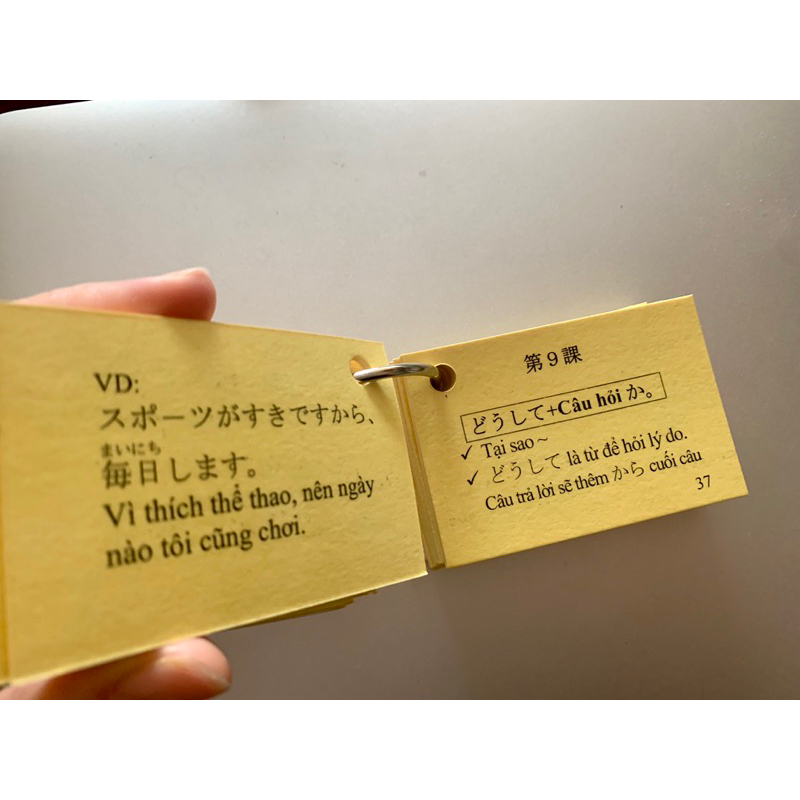 VD:
スポーツがすきですから、
まいにち
毎日します。
Vì thích thể thao, nên ngày
nào tôi cũng chơi.
第9課
どうして+Câu hỏi か。
✓ Tại sao ~
✓ どうして là từ để hỏi lý do.
Câu trả lời sẽ thêm から cuối câu
37